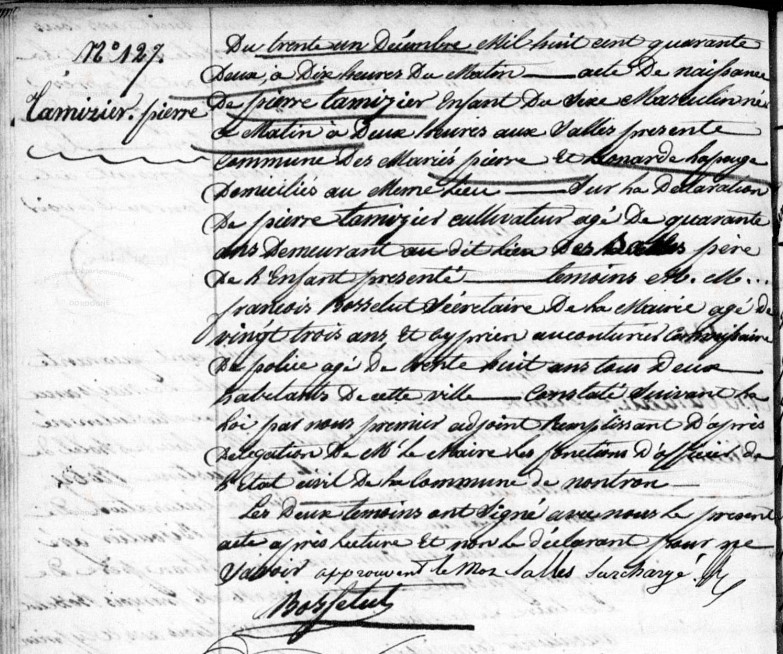 N° 127.
Tamizier. pierre
Du trente un Décembre Mil huit cent quarante
Deux, à Dix heures Du Matin — acte De naissance
De pierre tamizier Enfant Du Sexe Masculin né
ce Matin à Deux heures aux Salles presente
Commune Des Mariés pierre Et Léonarde Lapouge
Domiciliés au Meme lieu — Sur la Déclaration
De pierre tamizier cultivateur agé De quarante
ans Demeurant au dit lieu Des Salles père
De l'Enfant presenté — temoins M. M...
francois Bosselut Sécretaire De la Mairie agé de
vingt trois ans, Et Cyprien aucouturier Commissaire
De police agé De trente huit ans tous Deux
habitants De cette ville — Constaté Suivant la
Loi par nous premier adjoint Remplissant D'après
Délégation De Mr le Maire les fonctions D'officier de
l'Etat civil De la Commune de nontron —
Les Deux temoins ont Signé avec nous le present
acte après lecture Et non le déclarant pour ne
Savoir approuvent le Mot Salles Surchargé.
Bosselut